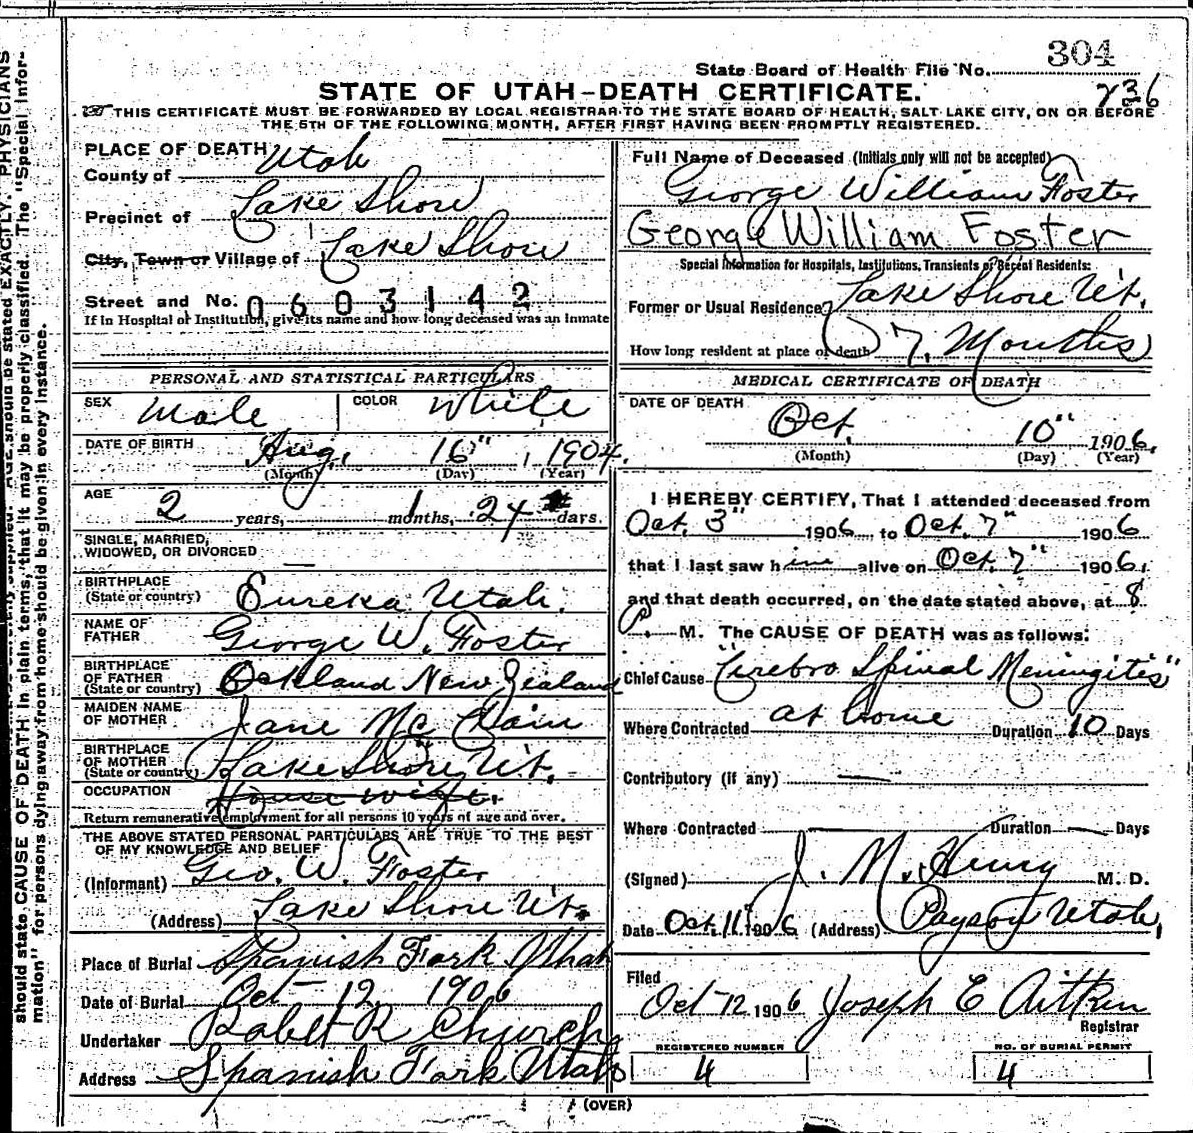 304
State Board of Health File No.
236
STATE OF UTAH-DEATH CERTIFICATE.
THIS CERTIFICATE MUST BE FORWARDED BY LOCAL REGISTRAR TO THE STATE BOARD OF HEALTH, SALT LAKE CITY, ON OR BEFORE
THE 5TH OF THE FOLLOWING MONTH, AFTER FIRST HAVING BEEN PROMPTLY REGISTERED.
PLACE OF DEATH
County of Utah
Precinct of Lake Shore
City, Town or Village of Lake Shore
Street and No. 0603142
If in Hospital or Institution, give its name and how long deceased was an inmate
PERSONAL AND STATISTICAL PARTICULARS
SEX Male COLOR White
DATE OF BIRTH Aug. 16" , 1904.
(Month) (Day) (Year)
AGE 2 years, 1 months, 24 days.
SINGLE, MARRIED,
WIDOWED, OR DIVORCED —
BIRTHPLACE
(State or country) Eureka Utah.
NAME OF
FATHER George W. Foster
BIRTHPLACE
OF FATHER
(State or country) Ockland New Zealand
MAIDEN NAME
OF MOTHER Jane Mc Clain
BIRTHPLACE
OF MOTHER
(State or country) Lake Shore Ut.
OCCUPATION House wife.
Return remunerative employment for all persons 10 years of age and over.
THE ABOVE STATED PERSONAL PARTICULARS ARE TRUE TO THE BEST
OF MY KNOWLEDGE AND BELIEF
(Informant) Geo. W. Foster
(Address) Lake Shore Ut.
Place of Burial Spanish Fork Utah
Date of Burial Oct 12 1906
Undertaker Robet R Church
Address Spanish Fork Utah
Full Name of Deceased (Initials only will not be accepted)
George William Foster
George William Foster
Special Information for Hospitals, Institutions, Transients or Recent Residents:
Former or Usual Residence Lake Shore Ut.
How long resident at place of death 7, Months
MEDICAL CERTIFICATE OF DEATH
DATE OF DEATH
Oct. 10" 1906.
(Month) (Day) (Year)
I HEREBY CERTIFY, That I attended deceased from
Oct. 3" 1906 to Oct. 7" 1906
that I last saw him alive on Oct. 7" 1906,
and that death occurred, on the date stated above, at 8.
P. M. The CAUSE OF DEATH was as follows:
Chief Cause "Cerebro Spinal Meningites"
Where Contracted at home Duration 10 Days
Contributory (if any) —
Where Contracted — Duration — Days
(Signed) J. M. Henry M. D.
Date Oct. 11" 1906 (Address) Payson Utah,
Filed
Oct 12 1906 Joseph E Aitkin
Registrar
REGISTERED NUMBER NO. OF BURIAL PERMIT
4 4
(OVER)
should state CAUSE OF DEATH in plain terms, that it may be properly classified. The "Special Infor-
mation" for persons dying away from home should be given in every instance.